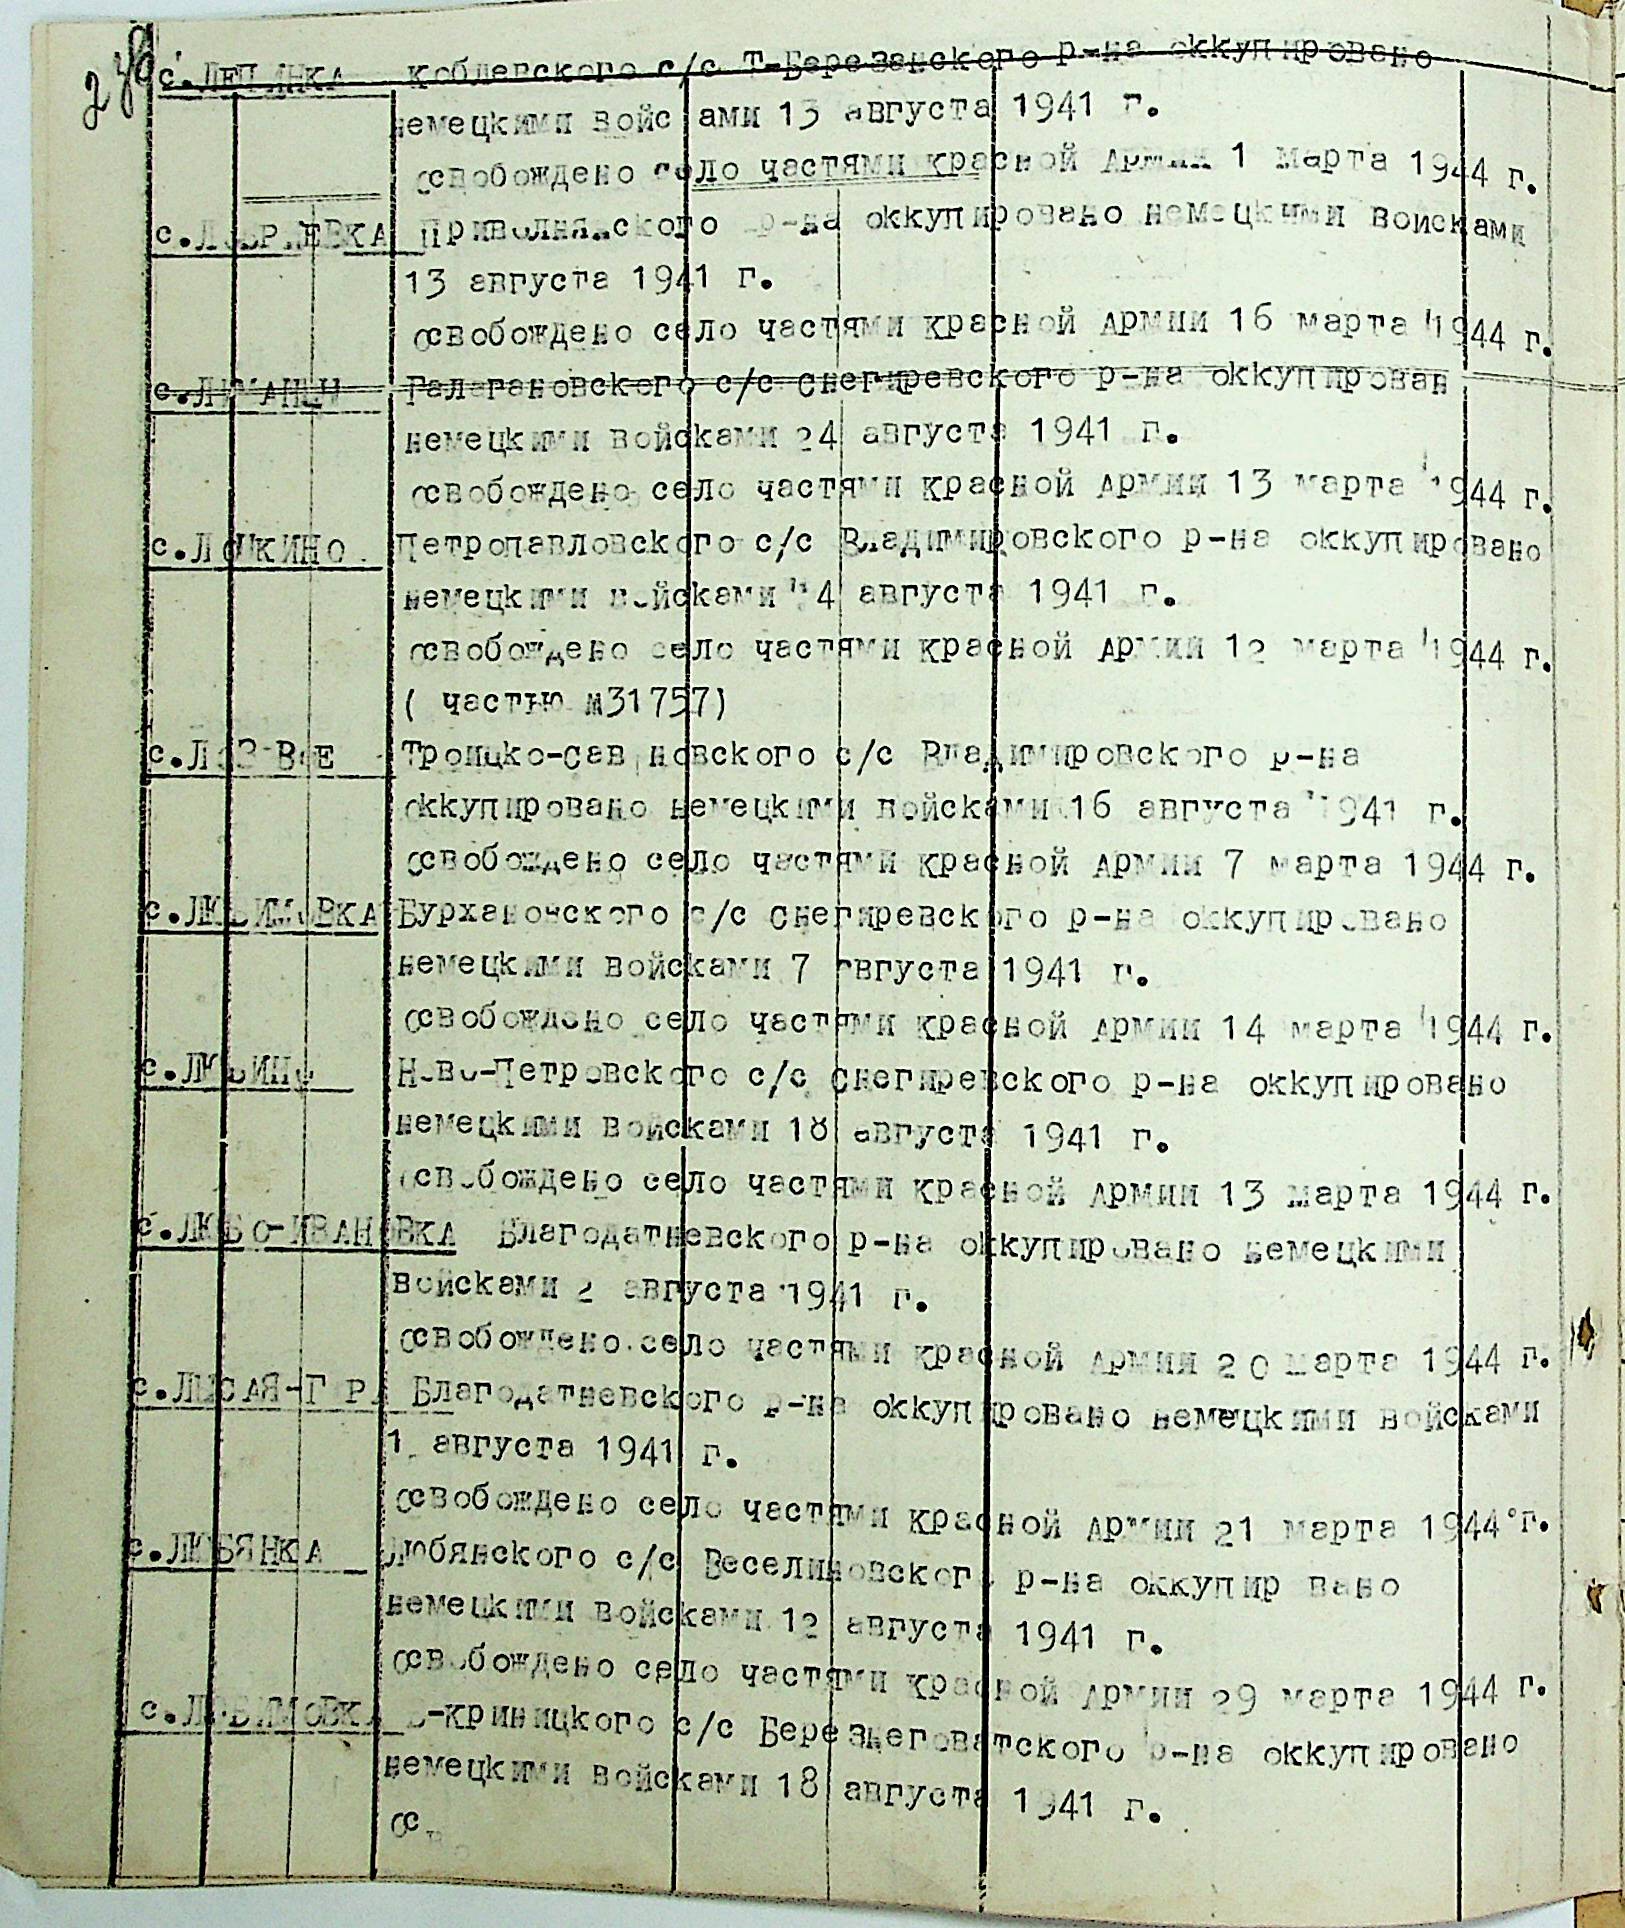 с.ЛЕПИНКА Коблевского с/с Т-Березанского р-на оккупировано
немецкими войс ами 13 августа 1941 г.
освобождено село частями красной Армии 1 марта 1944 г.
Привольнянского р-на оккупировано немецкими войсками
13 августа 1941 г.
освобождено село частями красной Армии 16 марта 1944 г.
Галагановского с/с Снегиревского р-на оккупирован
немецкими войсками 24 августа 1941 г.
освобождено село частями красной Армии 13 марта 1944 г.
с.ЛОШКИНО Петропавловского с/с Владимировского р-на оккупировано
немецкими войсками 14 августа 1941 г.
освобождено село частями красной Армии 12 марта 1944 г.
( частью №31757)
с.ЛОЗОВОЕ Троицко-Сав новского с/с Владимировского р-на
оккупировано немецкими войсками 16 августа 1941 г.
освобождено село частями красной Армии 7 марта 1944 г.
с.ЛЮБИМОВКА Бурхановского с/с Снегиревского р-на оккупировано
немецкими войсками 7 августа 1941 г.
освобождено село частями красной Армии 14 марта 1944 г.
с.ЛЮБИНО Ново-Петровского с/с Снегиревского р-на оккупировано
немецкими войсками 18 августа 1941 г.
освобождено село частями красной Армии 13 марта 1944 г.
с.ЛЮБО-ИВАНОВКА Благодатневского р-на оккупировано немецкими
войсками 2 августа 1941 г.
освобождено село частями красной Армии 20 марта 1944 г.
с.ЛЫСАЯ-ГОРА Благодатневского р-на оккупировано немецкими войсками
1 августа 1941 г.
освобождено село частями красной Армии 21 марта 1944 г.
с.ЛЮБЯНКА Любянского с/с Веселиновского р-на оккупир вано
немецкими войсками 12 августа 1941 г.
освобождено село частями красной Армии 29 марта 1944 г.
с.ЛЮБИМОВКА -криницкого с/с Березнеговатского р-на оккупировано
немецкими войсками 18 августа 1941 г.
осво